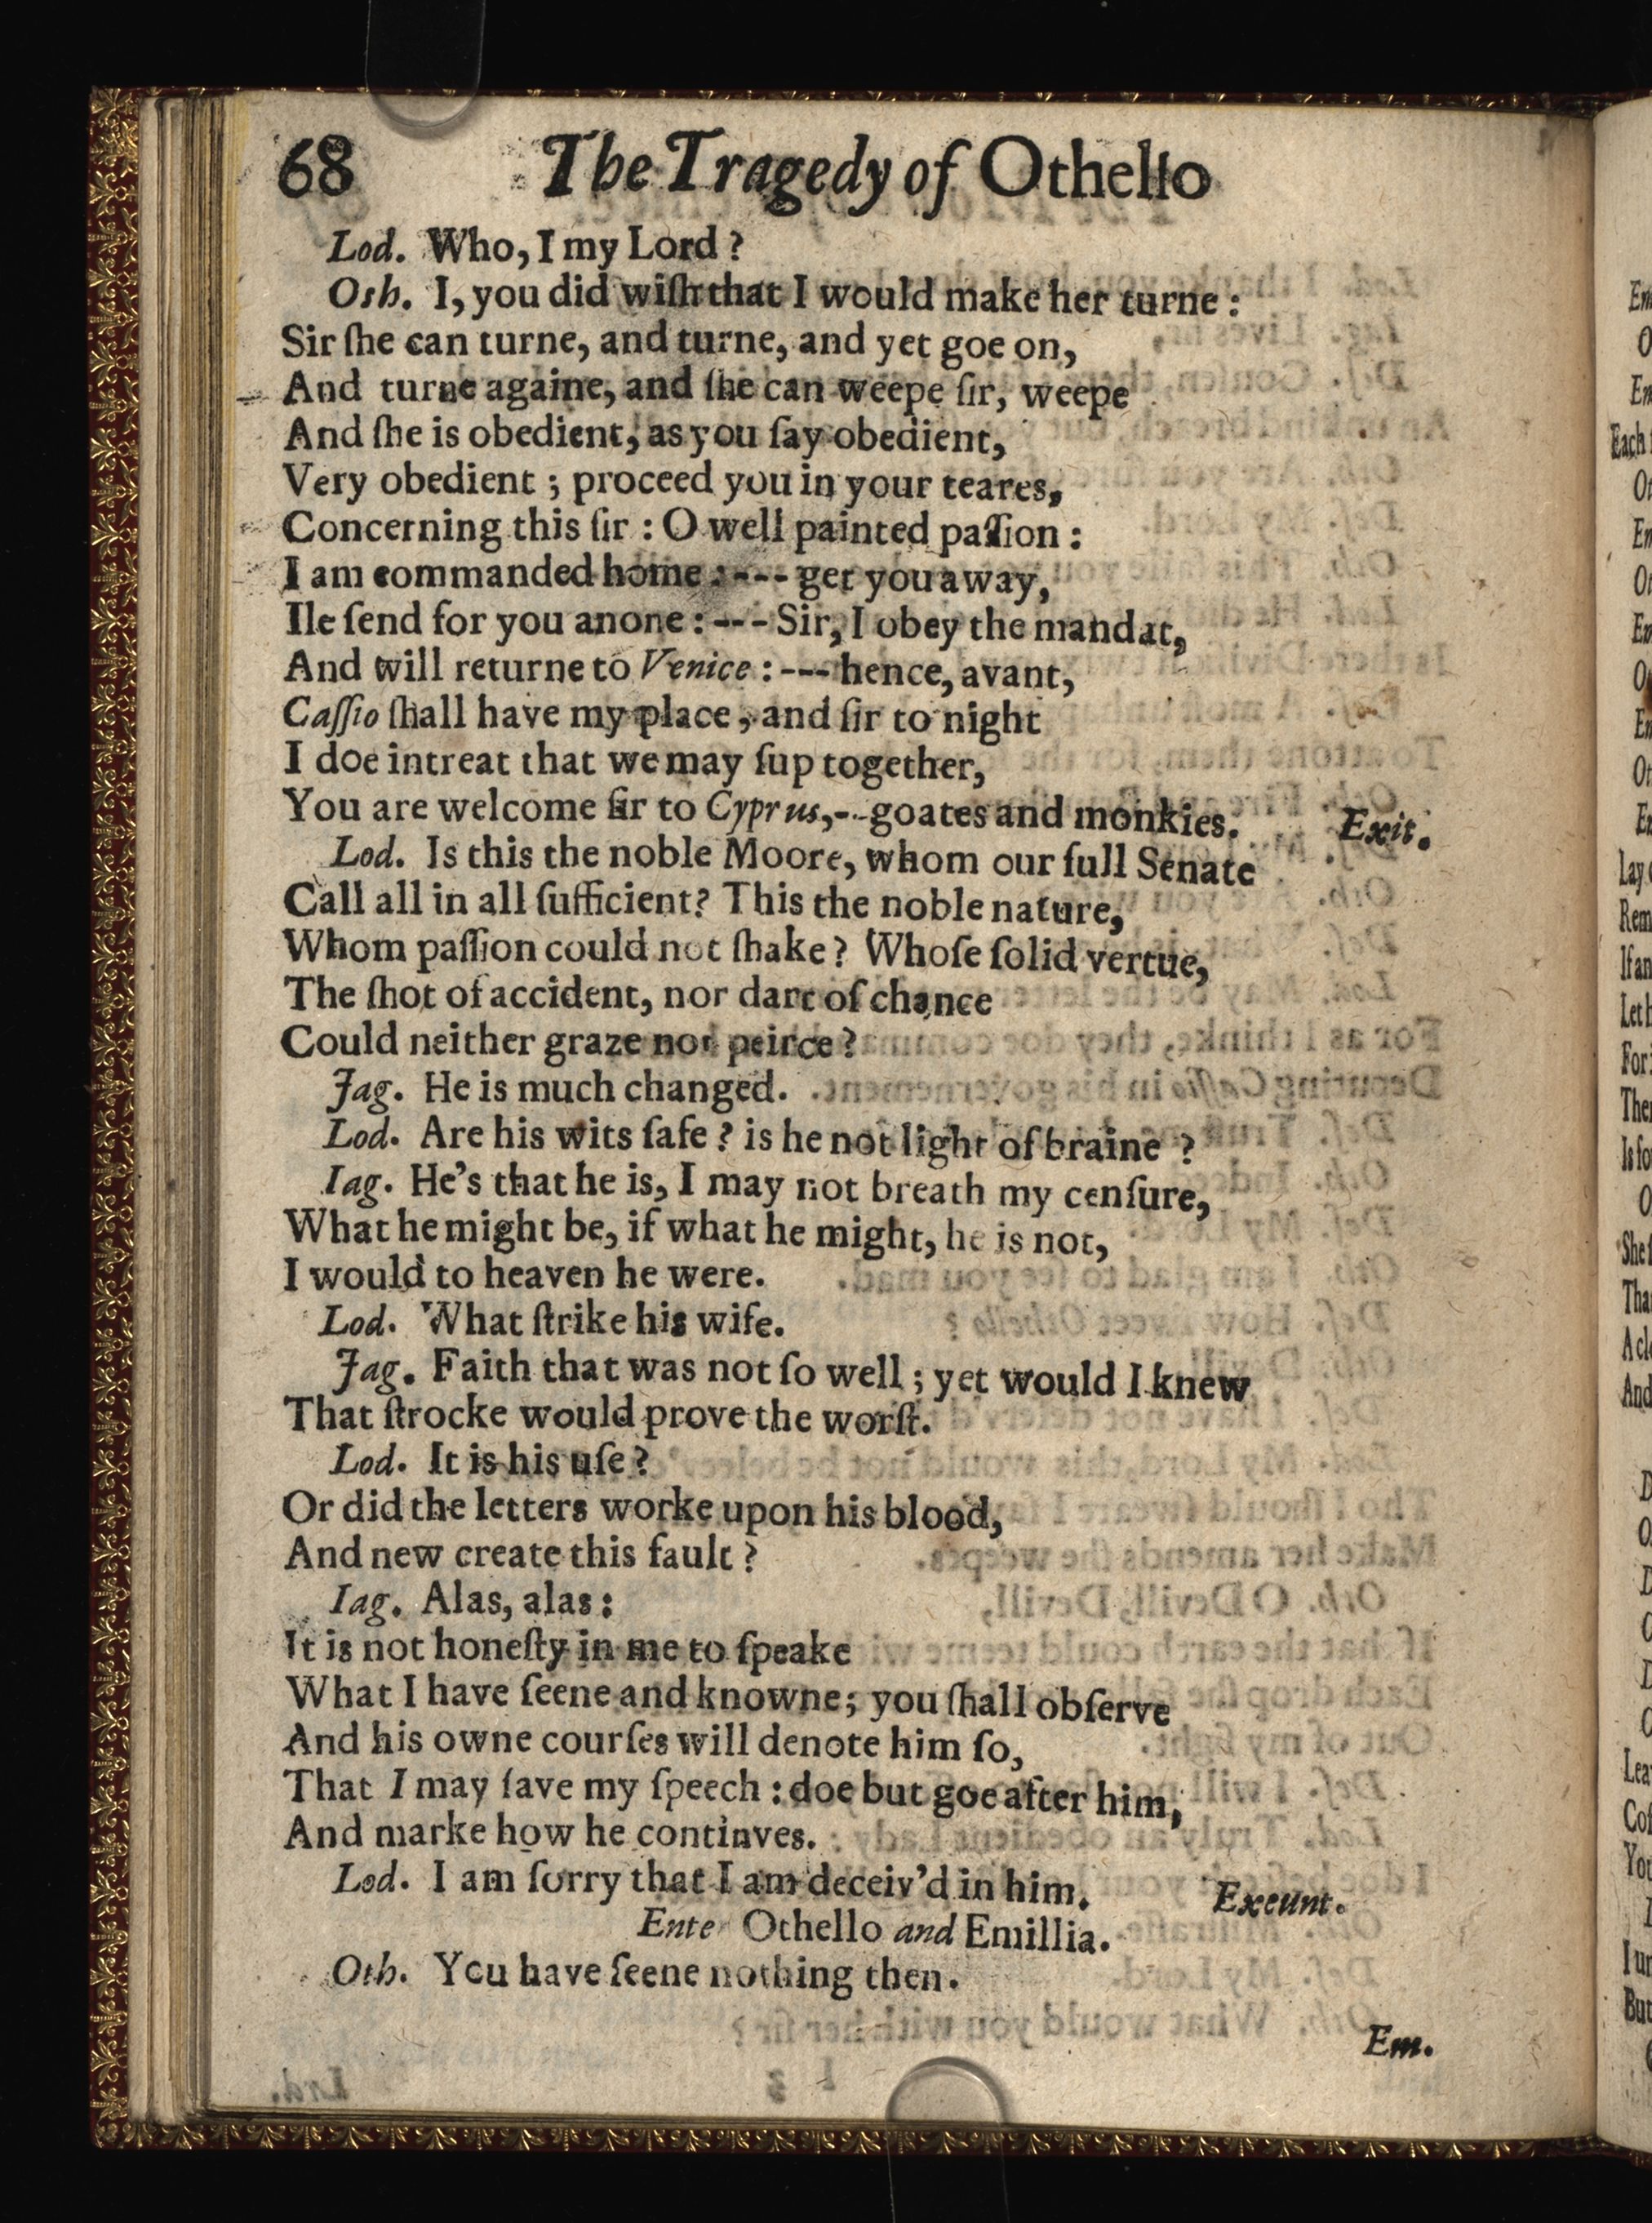 68 The Tragedy of Othello
Lod. Who, I my Lord ?
Oth. I, you did wiſh that I would make her turne :
Sir ſhe can turne, and turne, and yet goe on,
And turne againe, and ſhe can weepe ſir, weepe
And ſhe is obedient, as you ſay obedient,
Very obedient ; proceed you in your teares,
Concerning this ſir : O well painted paſſion :
I am commanded home : --- get you away,
Ile ſend for you anone : --- Sir, I obey the mandat,
And will returne to Venice : --- hence, avant,
Caſſio ſhall have my place, and ſir to night
I doe intreat that we may ſup together,
You are welcome ſir to Cyprus,--goates and monkies. Exit.
Lod. Is this the noble Moore, whom our full Senate
Call all in all ſufficient? This the noble nature,
Whom paſſion could not ſhake? Whoſe ſolid vertue,
The ſhot of accident, nor dart of chance
Could neither graze nor peirce ?
Jag. He is much changed.
Lod. Are his wits ſafe ? is he not light of braine ?
Iag. He's that he is, I may not breath my cenſure,
What he might be, if what he might, he is not,
I would to heaven he were.
Lod. What ſtrike his wife.
Jag. Faith that was not ſo well ; yet would I knew
That ſtrocke would prove the worſt.
Lod. It is his uſe ?
Or did the letters worke upon his blood,
And new create this fault ?
Iag. Alas, alas :
It is not honeſty in me to ſpeake
What I have ſeene and knowne; you ſhall obſerve
And his owne courſes will denote him ſo,
That I may ſave my ſpeech : doe but goe after him,
And marke how he continves.
Lod. I am ſorry that I am deceiv'd in him. Exeunt.
Ente Othello and Emillia.
Oth. You have ſeene nothing then.
Em.